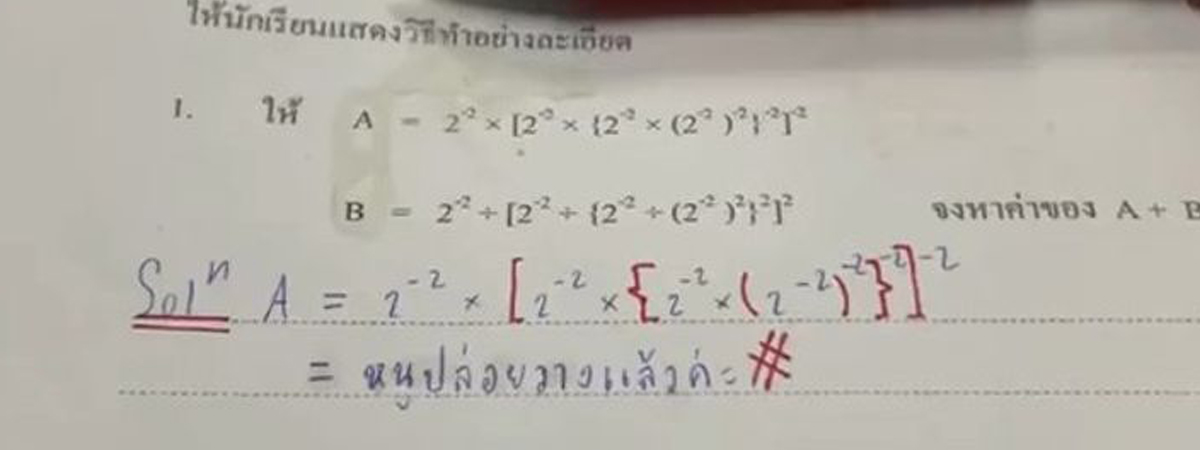 ให้นักเรียนแสดงวิธีทำอย่างละเอียด
1. ให้ A = 2⁻² × [2⁻² × {2⁻² × (2⁻² )⁻²}⁻²]⁻²
B = 2⁻² ÷ [2⁻² ÷ {2⁻² ÷ (2⁻² )²}²]² จงหาค่าของ A + B
Solⁿ A = 2⁻² × [2⁻² × {2⁻² × (2⁻²)⁻²}⁻²]⁻²
= หนูปล่อยวางแล้วค่ะ #